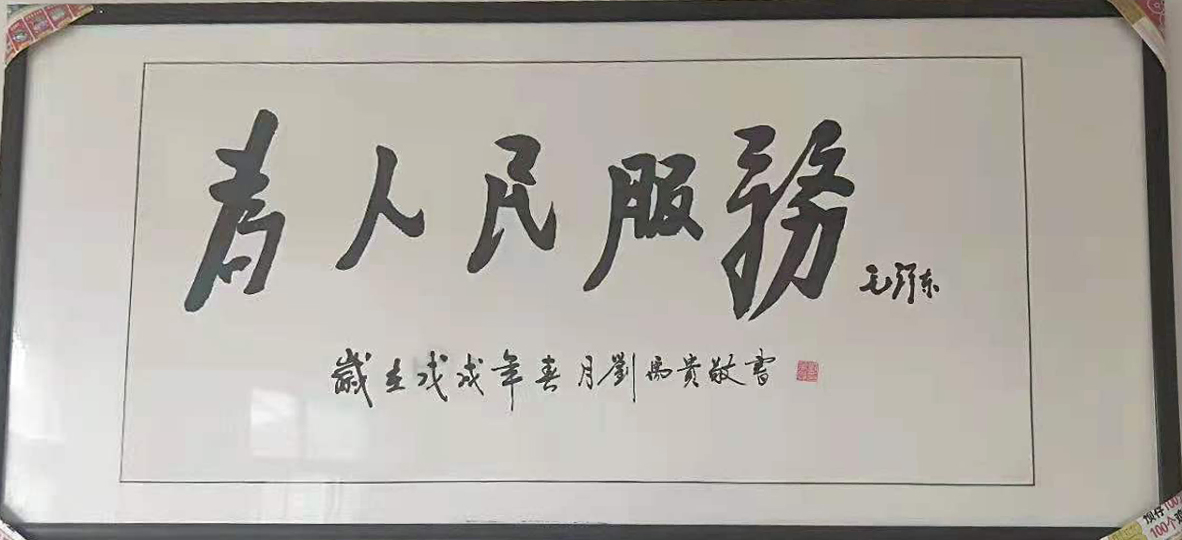 为人民服務
毛泽东
歲在戊戌年春月劉禹貴敬書
100个